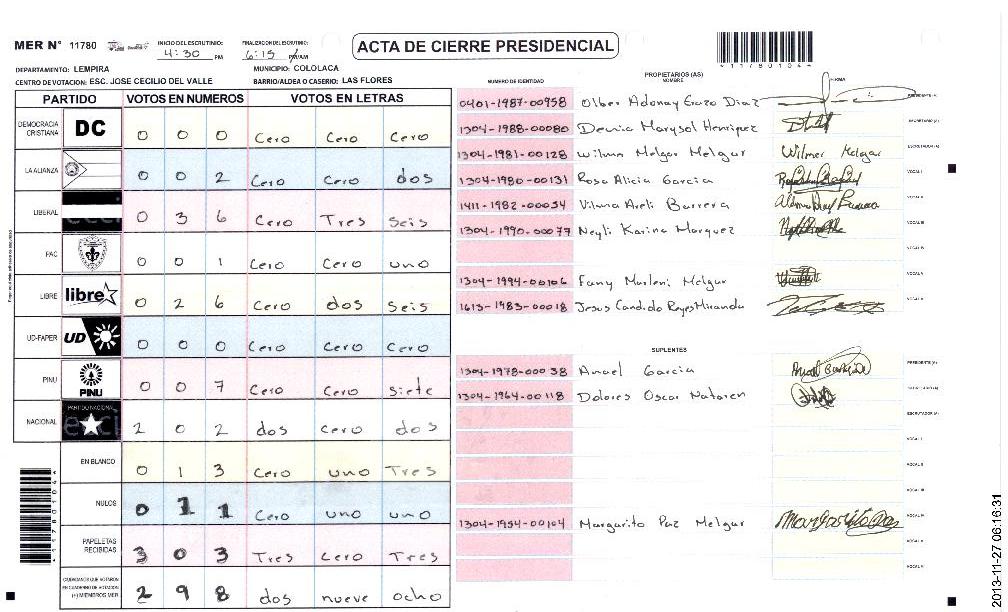 MER N° 11780
INICIO DEL ESCRUTINIO: 4:30 PM
FINALIZACION DEL ESCRUTINIO: 6:15 PM/AM
ACTA DE CIERRE PRESIDENCIAL
4117801044
DEPARTAMENTO: LEMPIRA
MUNICIPIO: COLOLACA
CENTRO DE VOTACION: ESC. JOSE CECILIO DEL VALLE
BARRIO/ALDEA O CASERIO: LAS FLORES
PARTIDO VOTOS EN NUMEROS VOTOS EN LETRAS
DEMOCRACIA CRISTIANA DC 0 0 0 Cero Cero Cero
LA ALIANZA 0 0 2 Cero Cero dos
LIBERAL 0 3 6 Cero Tres Seis
PAC 0 0 1 Cero Cero uno
LIBRE libre 0 2 6 Cero dos Seis
UD-FAPER UD 0 0 0 Cero Cero Cero
PINU PINU 0 0 7 Cero Cero Siete
NACIONAL PARTIDO NACIONAL 2 0 2 dos Cero dos
EN BLANCO 0 1 3 Cero uno Tres
NULOS 0 1 1 Cero uno uno
PAPELETAS RECIBIDAS 3 0 3 Tres Cero Tres
CIUDADANOS QUE VOTARON EN CUADERNO DE VOTACION (+) MIEMBROS MER 2 9 8 dos nueve ocho
4117801044
PROPIETARIOS (AS)
NUMERO DE IDENTIDAD NOMBRE FIRMA
0401-1987-00958 Olber Adonay Diaz PRESIDENTE (A)
1304-1988-00080 Marysol Henriquez SECRETARIO (A)
1304-1981-00128 Wilmer Melgar Melgar Wilmer Melgar ESCRUTADOR (A)
1304-1980-00131 Rosa Alicia Garcia VOCAL I
1411-1982-00054 Vilma Areli Barrera VOCAL II
1304-1990-00077 Neyli Karina Marquez VOCAL III
VOCAL IV
1304-1994-00106 Fany Marleni Melgar VOCAL V
1613-1983-00018 Jesus Candido Reyes Miranda VOCAL VI
SUPLENTES
1304-1978-00038 Anael Garcia PRESIDENTE (A)
1304-1964-00118 Dolores Oscar Nataren SECRETARIO (A)
ESCRUTADOR (A)
VOCAL I
VOCAL II
VOCAL III
1304-1954-00104 Margarito Paz Melgar Margarito Paz VOCAL IV
VOCAL V
VOCAL VI
2013-11-27 06:16:31